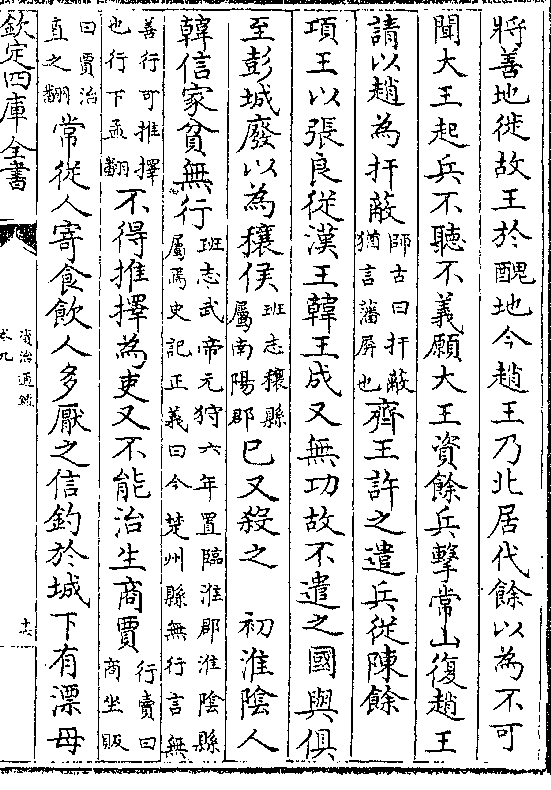 將善地徙故王於醜地今趙王乃北居代餘以為不可
聞大王起兵不聽不義願大王資餘兵擊常山復趙王
請以趙為扞蔽師古曰扞蔽猶言藩屏也齊王許之遣兵從陳餘
項王以張良從漢王韓王成又無功故不遣之國與俱
至彭城廢以為穰侯班志穰縣屬南陽郡已又殺之　初淮陰人
韓信家貧無行班志武帝元狩六年置臨淮郡淮陰縣屬焉史記正義曰今楚州縣無行言無
善行可推擇也行下孟翻不得推擇為吏又不能治生商賈行賣曰商坐販
曰賈治直之翻常從人寄食飲人多厭之信釣於城下有漂母
欽定四庫全書
資治通鑑
卷九
十六